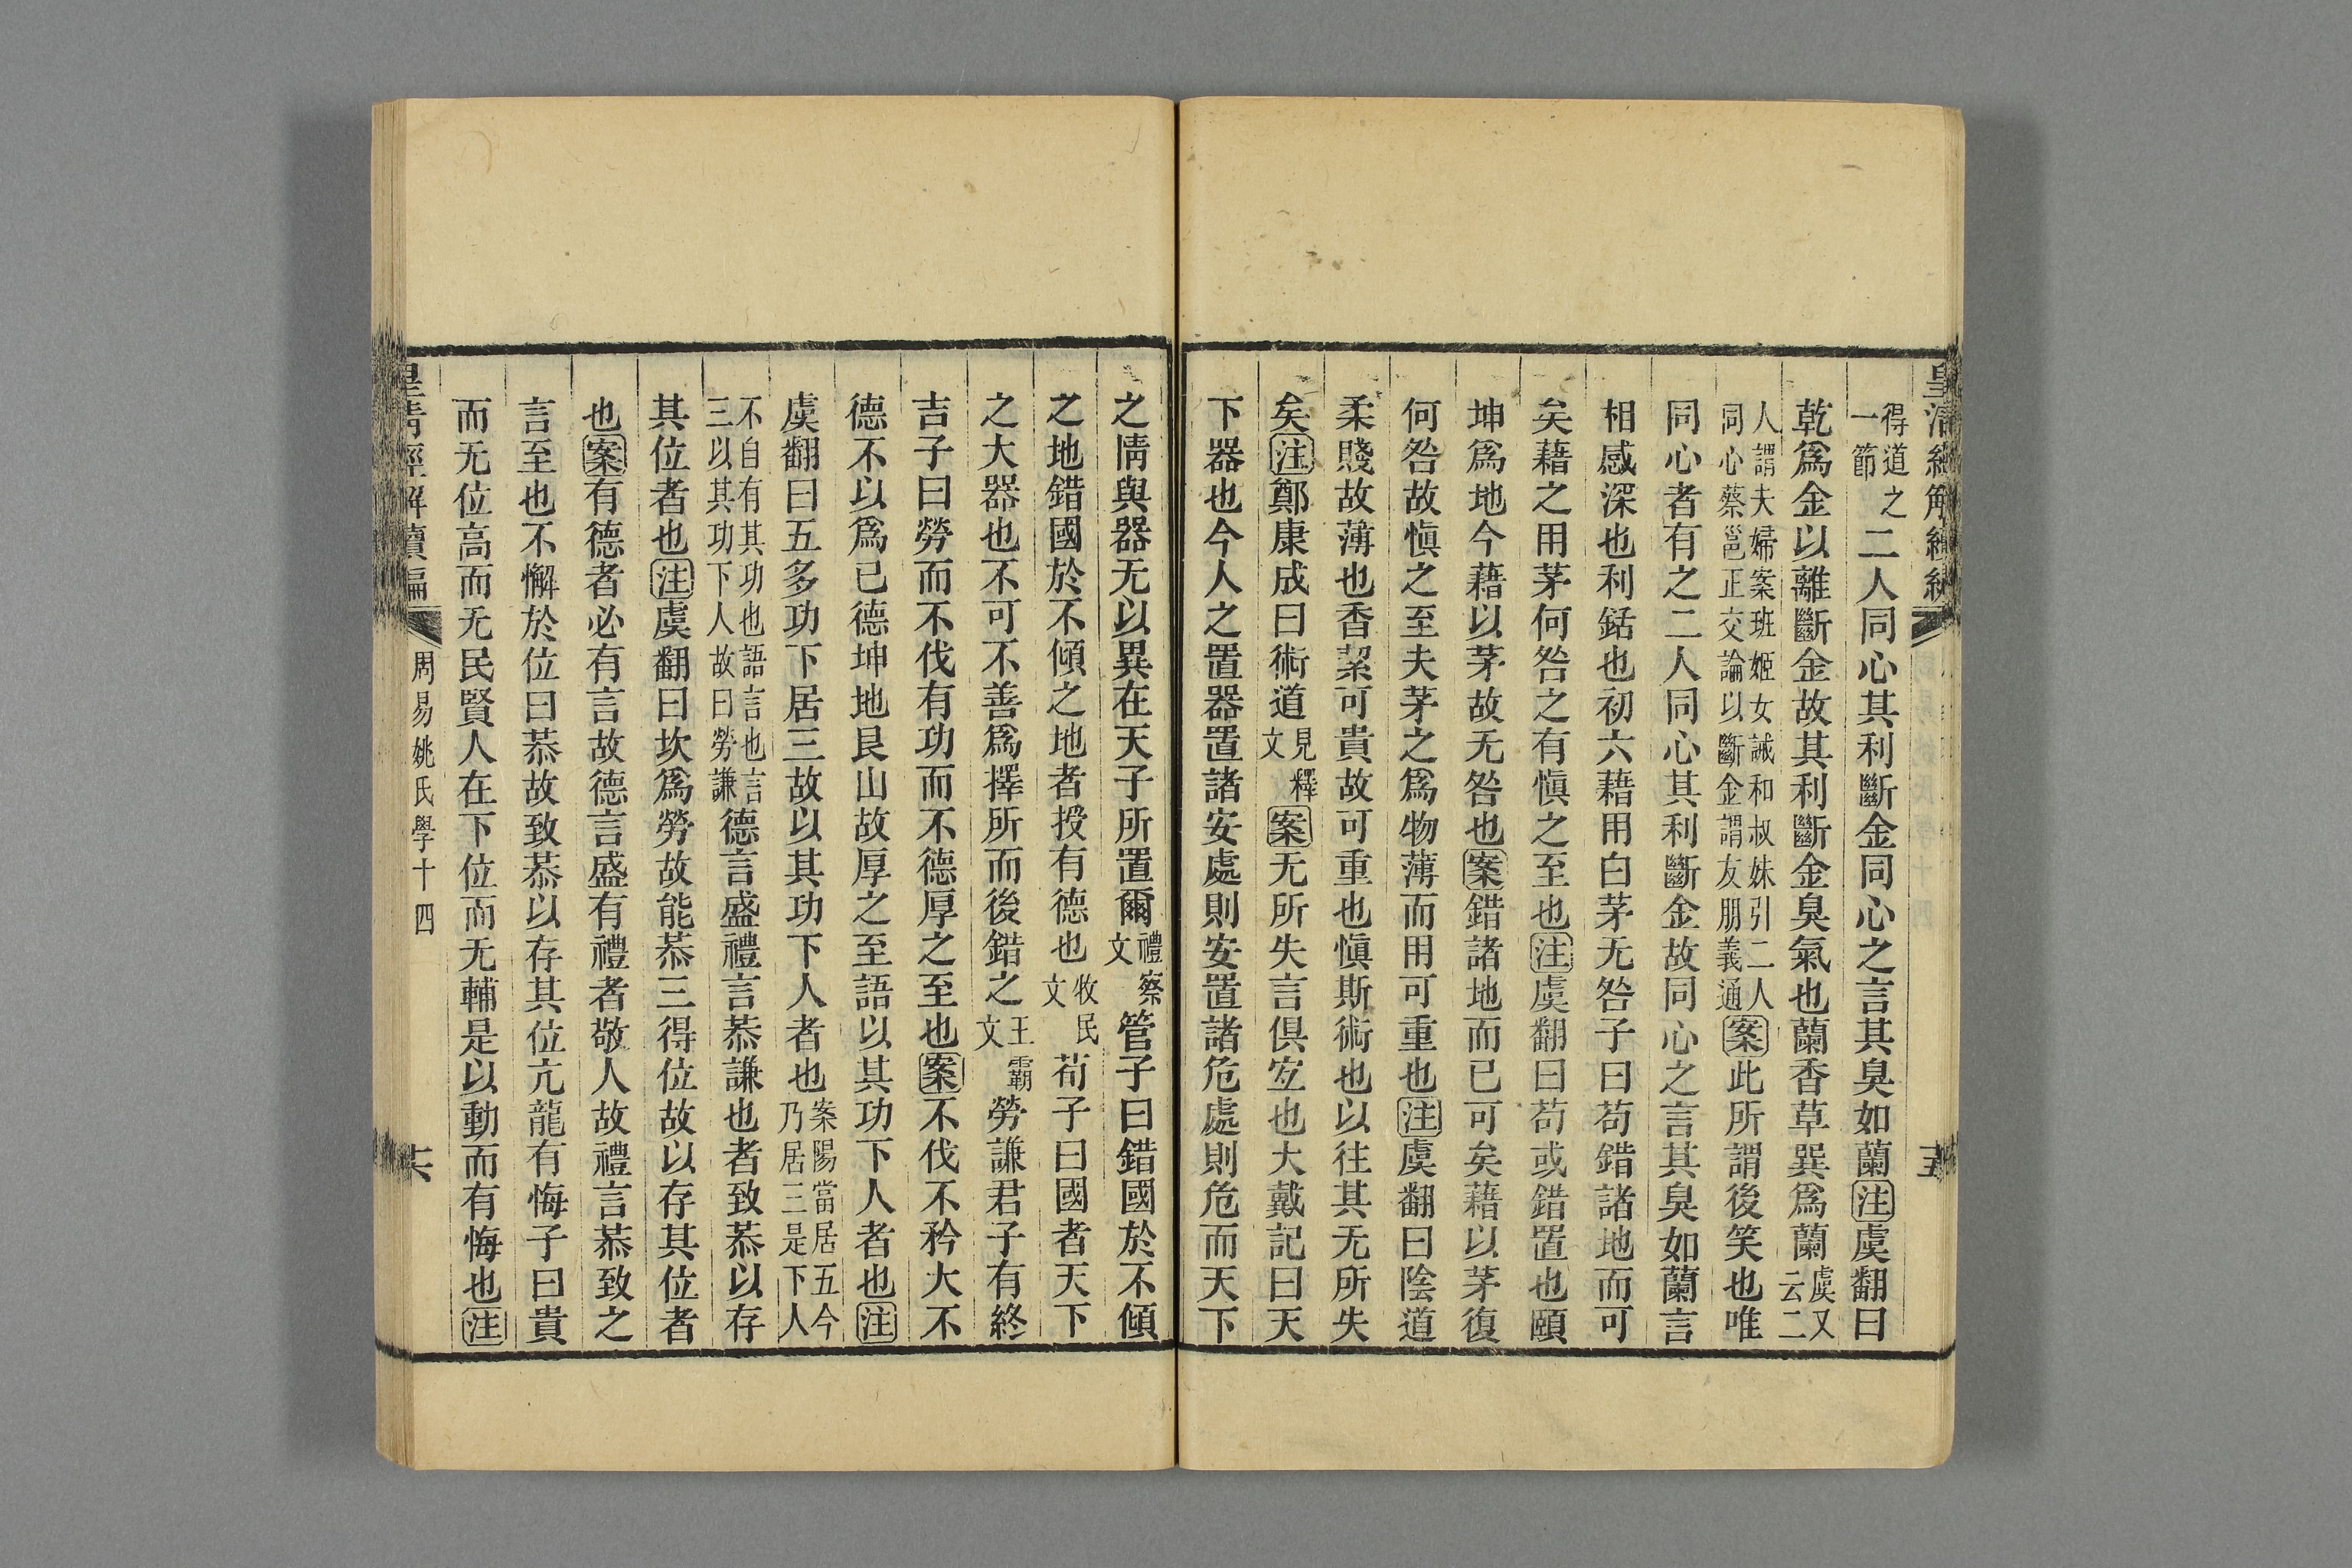 得道之一節二人同心其利斷金同心之言其臭如蘭注虞翻曰
乾爲金以離斷金故其利斷金臭氣也蘭香草巽爲蘭虞又云二
人謂夫婦案班姬女誡和叔妹引二人同心蔡邕正交論以斷金謂友朋義通案此所謂後笑也唯
同心者有之二人同心其利斷金故同心之言其臭如蘭言
相感深也利銛也初六藉用白茅无咎子曰苟錯諸地而可
矣藉之用茅何咎之有愼之至也注虞翻曰苟或錯置也頤
坤爲地今藉以茅故无咎也案錯諸地而已可矣藉以茅復
何咎故愼之至夫茅之爲物薄而用可重也注虞翻曰陰道
柔賤故薄也香絜可貴故可重也愼斯術也以往其无所失
矣注鄭康成曰術道見釋文案无所失言俱㝎也大戴記曰天
下器也今人之置器置諸安處則安置諸危處則危而天下
之情與器无以異在天子所置爾禮察文管子曰錯國於不傾
之地錯國於不傾之地者授有德也牧民文荀子曰國者天下
之大器也不可不善爲擇所而後錯之王霸文勞謙君子有終
吉子曰勞而不伐有功而不德厚之至也案不伐不矜大不
德不以爲已德坤地艮山故厚之至語以其功下人者也注
虞翻曰五多功下居三故以其功下人者也案陽當居五今乃居三是下人
不自有其功也語言也言三以其功下人故曰勞謙德言盛禮言恭謙也者致恭以存
其位者也注虞翻曰坎爲勞故能恭三得位故以存其位者
也案有德者必有言故德言盛有禮者敬人故禮言恭致之
言至也不懈於位曰恭故致恭以存其位亢龍有悔子曰貴
而无位高而无民賢人在下位而无輔是以動而有悔也注
皇清經解續編
周易姚氏學十四